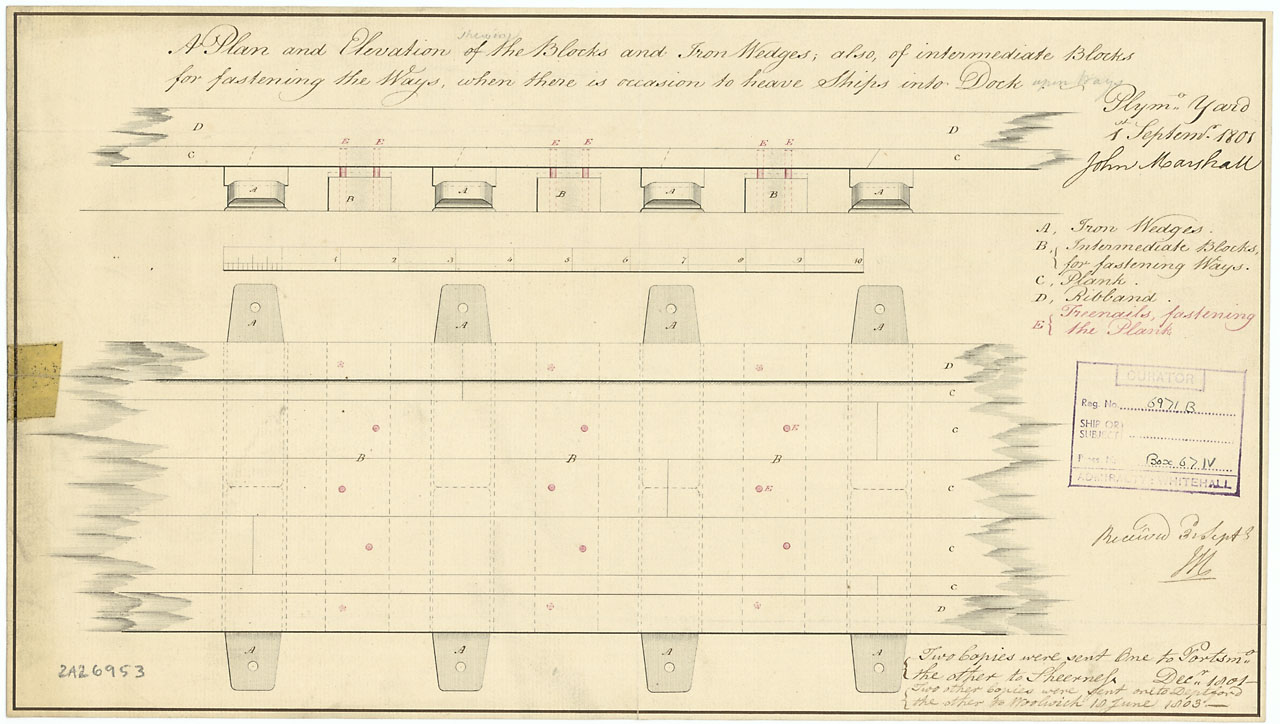 A Plan and Elevation shewing of the Blocks and Iron Wedges; also, of intermediate Blocks
for fastening the Ways, when there is occasion to heave Ships into Dock upon Ways
Plymo. Yard
1st Septemr. 1801
John Marshall
D D
C C
E E E E E E
A B A B A B A
A, Iron Wedges.
B, { Intermediate Blocks,
for fastening Ways.
C, Plank.
D, Ribband.
E { Treenails, fastening
the Plank
1 2 3 4 5 6 7 8 9 10
A A A A
D
C
E C
B B B
E C
C
C
D
A A A A
CURATOR
Reg. No. 6971 B
SHIP (OR)
SUBJECT)
Press No. Box 67 IV
ADMIRALTY: WHITEHALL
Received 3d Septr
JM
2A26953
Two Copies were sent One to Portsmo.
the other to Sheerness Decr. 1801
Two other Copies were sent one to Deptford
the other to Woolwich 10 June 1803